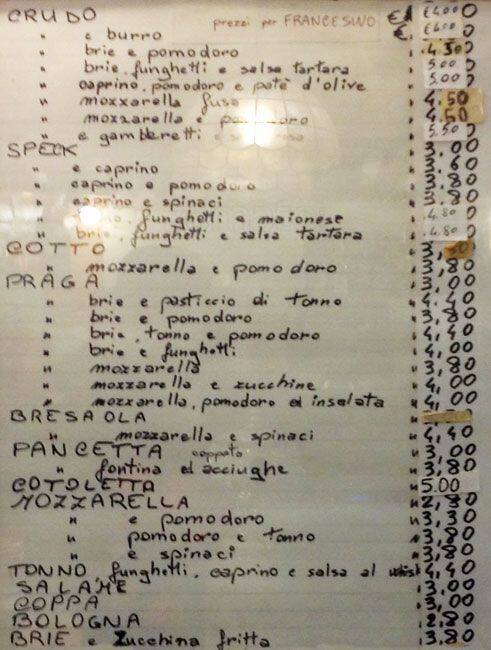 CRUDO prezzi per FRANCESINO € 4.00
" e burro € 4.00
" brie e pomodoro " 4.50
" brie, funghetti e salsa tartara " 5.00
" caprino, pomodoro e patè d'olive " 5.00
" mozzarella fusa " 4.50
" mozzarella e pomodoro " 4.50
" e gamberetti e salsa rosa " 5.50
SPECK " 3,00
" e caprino " 3.60
" caprino e pomodoro " 3.80
" caprino e spinaci " 3.80
" funghetti e maionese " 4.80
" brie, funghetti e salsa tartara " 4.80
COTTO "
" mozzarella e pomodoro " 3,80
PRAGA " 3,00
" brie e pasticcio di tonno " 4.40
" brie e pomodoro " 3,80
" brie, tonno e pomodoro " 4,40
" brie e funghetti " 4,00
" mozzarella " 3,80
" mozzarella e zucchine " 4,00
" mozzarella, pomodoro ed insalata " 4,00
BRESAOLA "
" mozzarella e spinaci " 4,40
PANCETTA coppata " 3,00
" fontina ed acciughe " 3,80
COTOLETTA " 5.00
MOZZARELLA " 2,80
" e pomodoro " 3,30
" pomodoro e tonno " 3,80
" e spinaci " 3,80
TONNO funghetti, caprino e salsa al whisk " 4,40
SALAME " 3,00
COPPA " 3,00
BOLOGNA " 2,80
BRIE e Zucchina fritta " 3,80